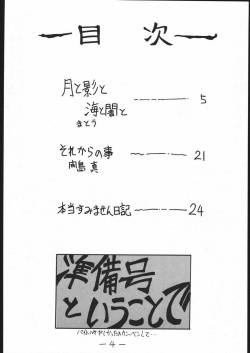 目次
月と影と
海と闇と
まとう
5
それからの事
向島 真
21
本当すみません日記
24
準備号
ということで
-4-